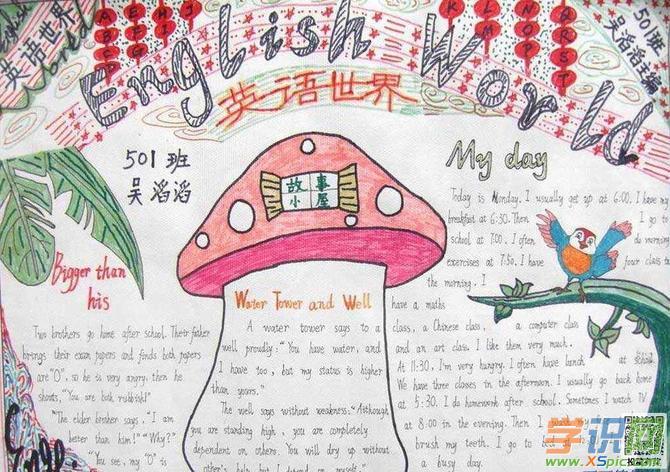 英语世界
English World
英语世界
A B C D
E F G
H I J
K L
M
N O P
Q R S T
501班
吴滔滔主编
501班
吴滔滔
故事
小屋
Bigger than
his
Two brothers go home after school. Their father
brings their exam papers and finds both papers
are "0", so he is very angry, then he
shouts, "You are both rubbish!"
"The elder brother says, "I am
better than him!" "Why?"
"You see, my "0" is
Water Tower and Well
A water tower says to a
well proudly: "You have water, and
I have too, but my status is higher
than yours."
The well says without weakness: "Although
you are standing high, you are completely
dependent on others. You will dry up without
other's help but I depend on myself."
My day
Today is Monday. I usually get up at 6:00. I have my
breakfast at 6:30. Then I go to
school at 7:00. I often do morning
exercises at 7:50. I have four class in
the morning. I
have a maths
class, a Chinese class, a computer class
and an art class. I like them very much.
At 11:30, I'm very hungry. I often have lunch at school.
We have three closes in the afternoon. I usually go back home
at 5:30. I do homework after school. Sometimes I watch TV
at 8:00 in the evening. Then I
brush my teeth. I go to
a busy day.
学识网
www.xspic